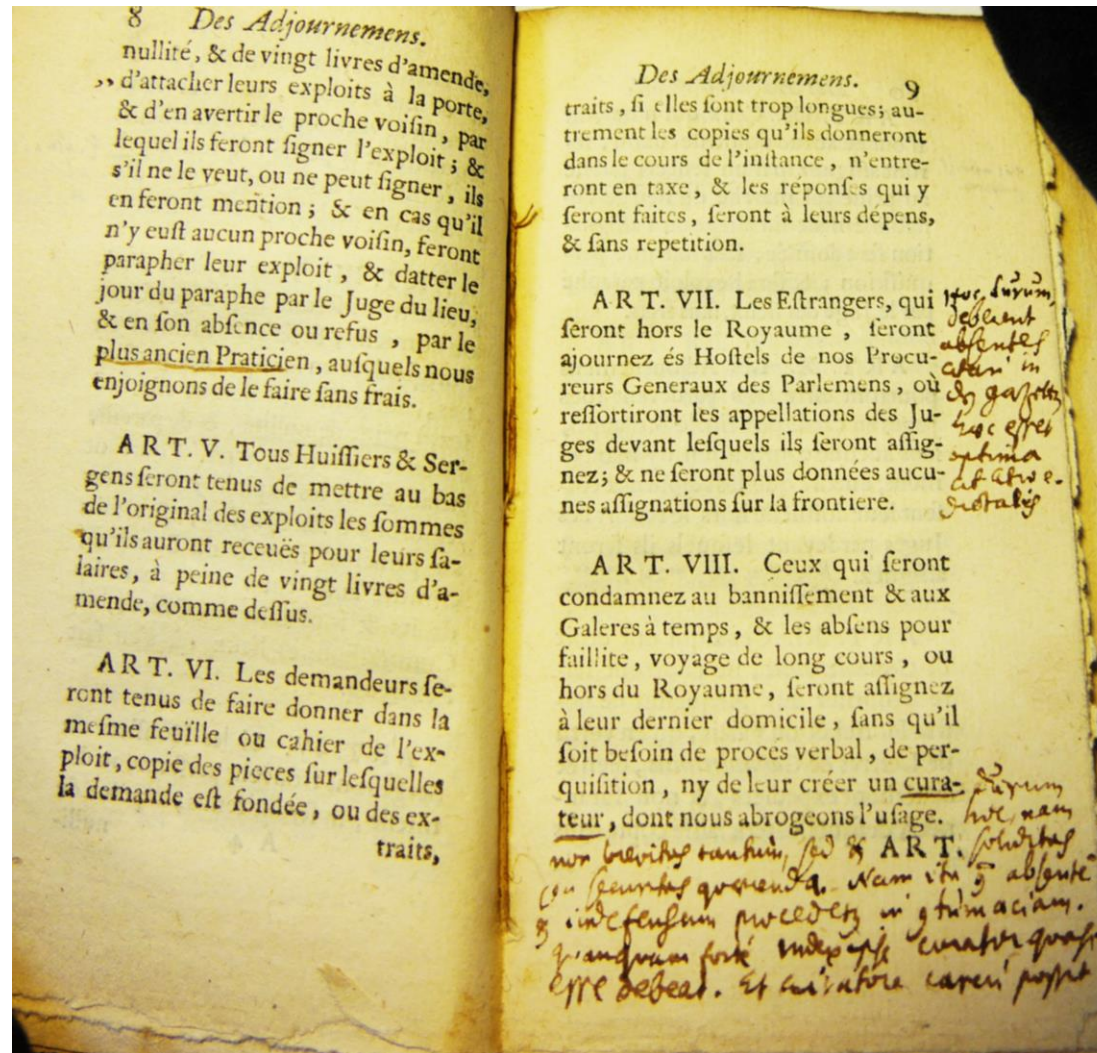 8 Des Adjournemens.
nullité, & de vingt livres d'amende,
,, d'attacher leurs exploits à la porte,
& d'en avertir le proche voiſin, par
lequel ils feront ſigner l'exploit; &
s'il ne le veut, ou ne peut ſigner, ils
en feront mention; & en cas qu'il
n'y euſt aucun proche voiſin, feront
parapher leur exploit, & datter le
jour du paraphe par le Juge du lieu,
& en ſon abſence ou refus, par le
plus ancien Praticien, auſquels nous
enjoignons de le faire ſans frais.
ART. V. Tous Huiſſiers & Ser-
gens ſeront tenus de mettre au bas
de l'original des exploits les ſommes
qu'ils auront receuës pour leurs ſa-
laires, à peine de vingt livres d'a-
mende, comme deſſus.
ART. VI. Les demandeurs ſe-
ront tenus de faire donner dans la
meſme feuïlle ou cahier de l'ex-
ploit, copie des pieces ſur leſquelles
la demande eſt fondée, ou des ex-
traits,
Des Adjournemens. 9
traits, ſi elles ſont trop longues; au-
trement les copies qu'ils donneront
dans le cours de l'inſtance, n'entre-
ront en taxe, & les réponſes qui y
ſeront faites, ſeront à leurs dépens,
& ſans repetition.
ART. VII. Les Eſtrangers, qui
ſeront hors le Royaume, ſeront
ajournez és Hoſtels de nos Procu-
reurs Generaux des Parlemens, où
reſſortiront les appellations des Ju-
ges devant leſquels ils ſeront aſſig-
nez; & ne ſeront plus données aucu-
nes aſſignations ſur la frontiere.
hoc durum,
debent
absentes
citari in
gazettis
hoc esset
optima
citatio e-
dictalis
ART. VIII. Ceux qui ſeront
condamnez au banniſſement & aux
Galeres à temps, & les abſens pour
faillite, voyage de long cours, ou
hors du Royaume, ſeront aſſignez
à leur dernier domicile, ſans qu'il
ſoit beſoin de procés verbal, de per-
quiſition, ny de leur créer un cura-
teur, dont nous abrogeons l'uſage.
ART.
durum
hoc, nam
non brevitas tantum, sed & soliditas
securitas quærenda. Nam ita absente
indefensum procedetur in contumaciam.
quanquam forte Iudex ipse curator quasi
esse debeat. Et curatore careri possit